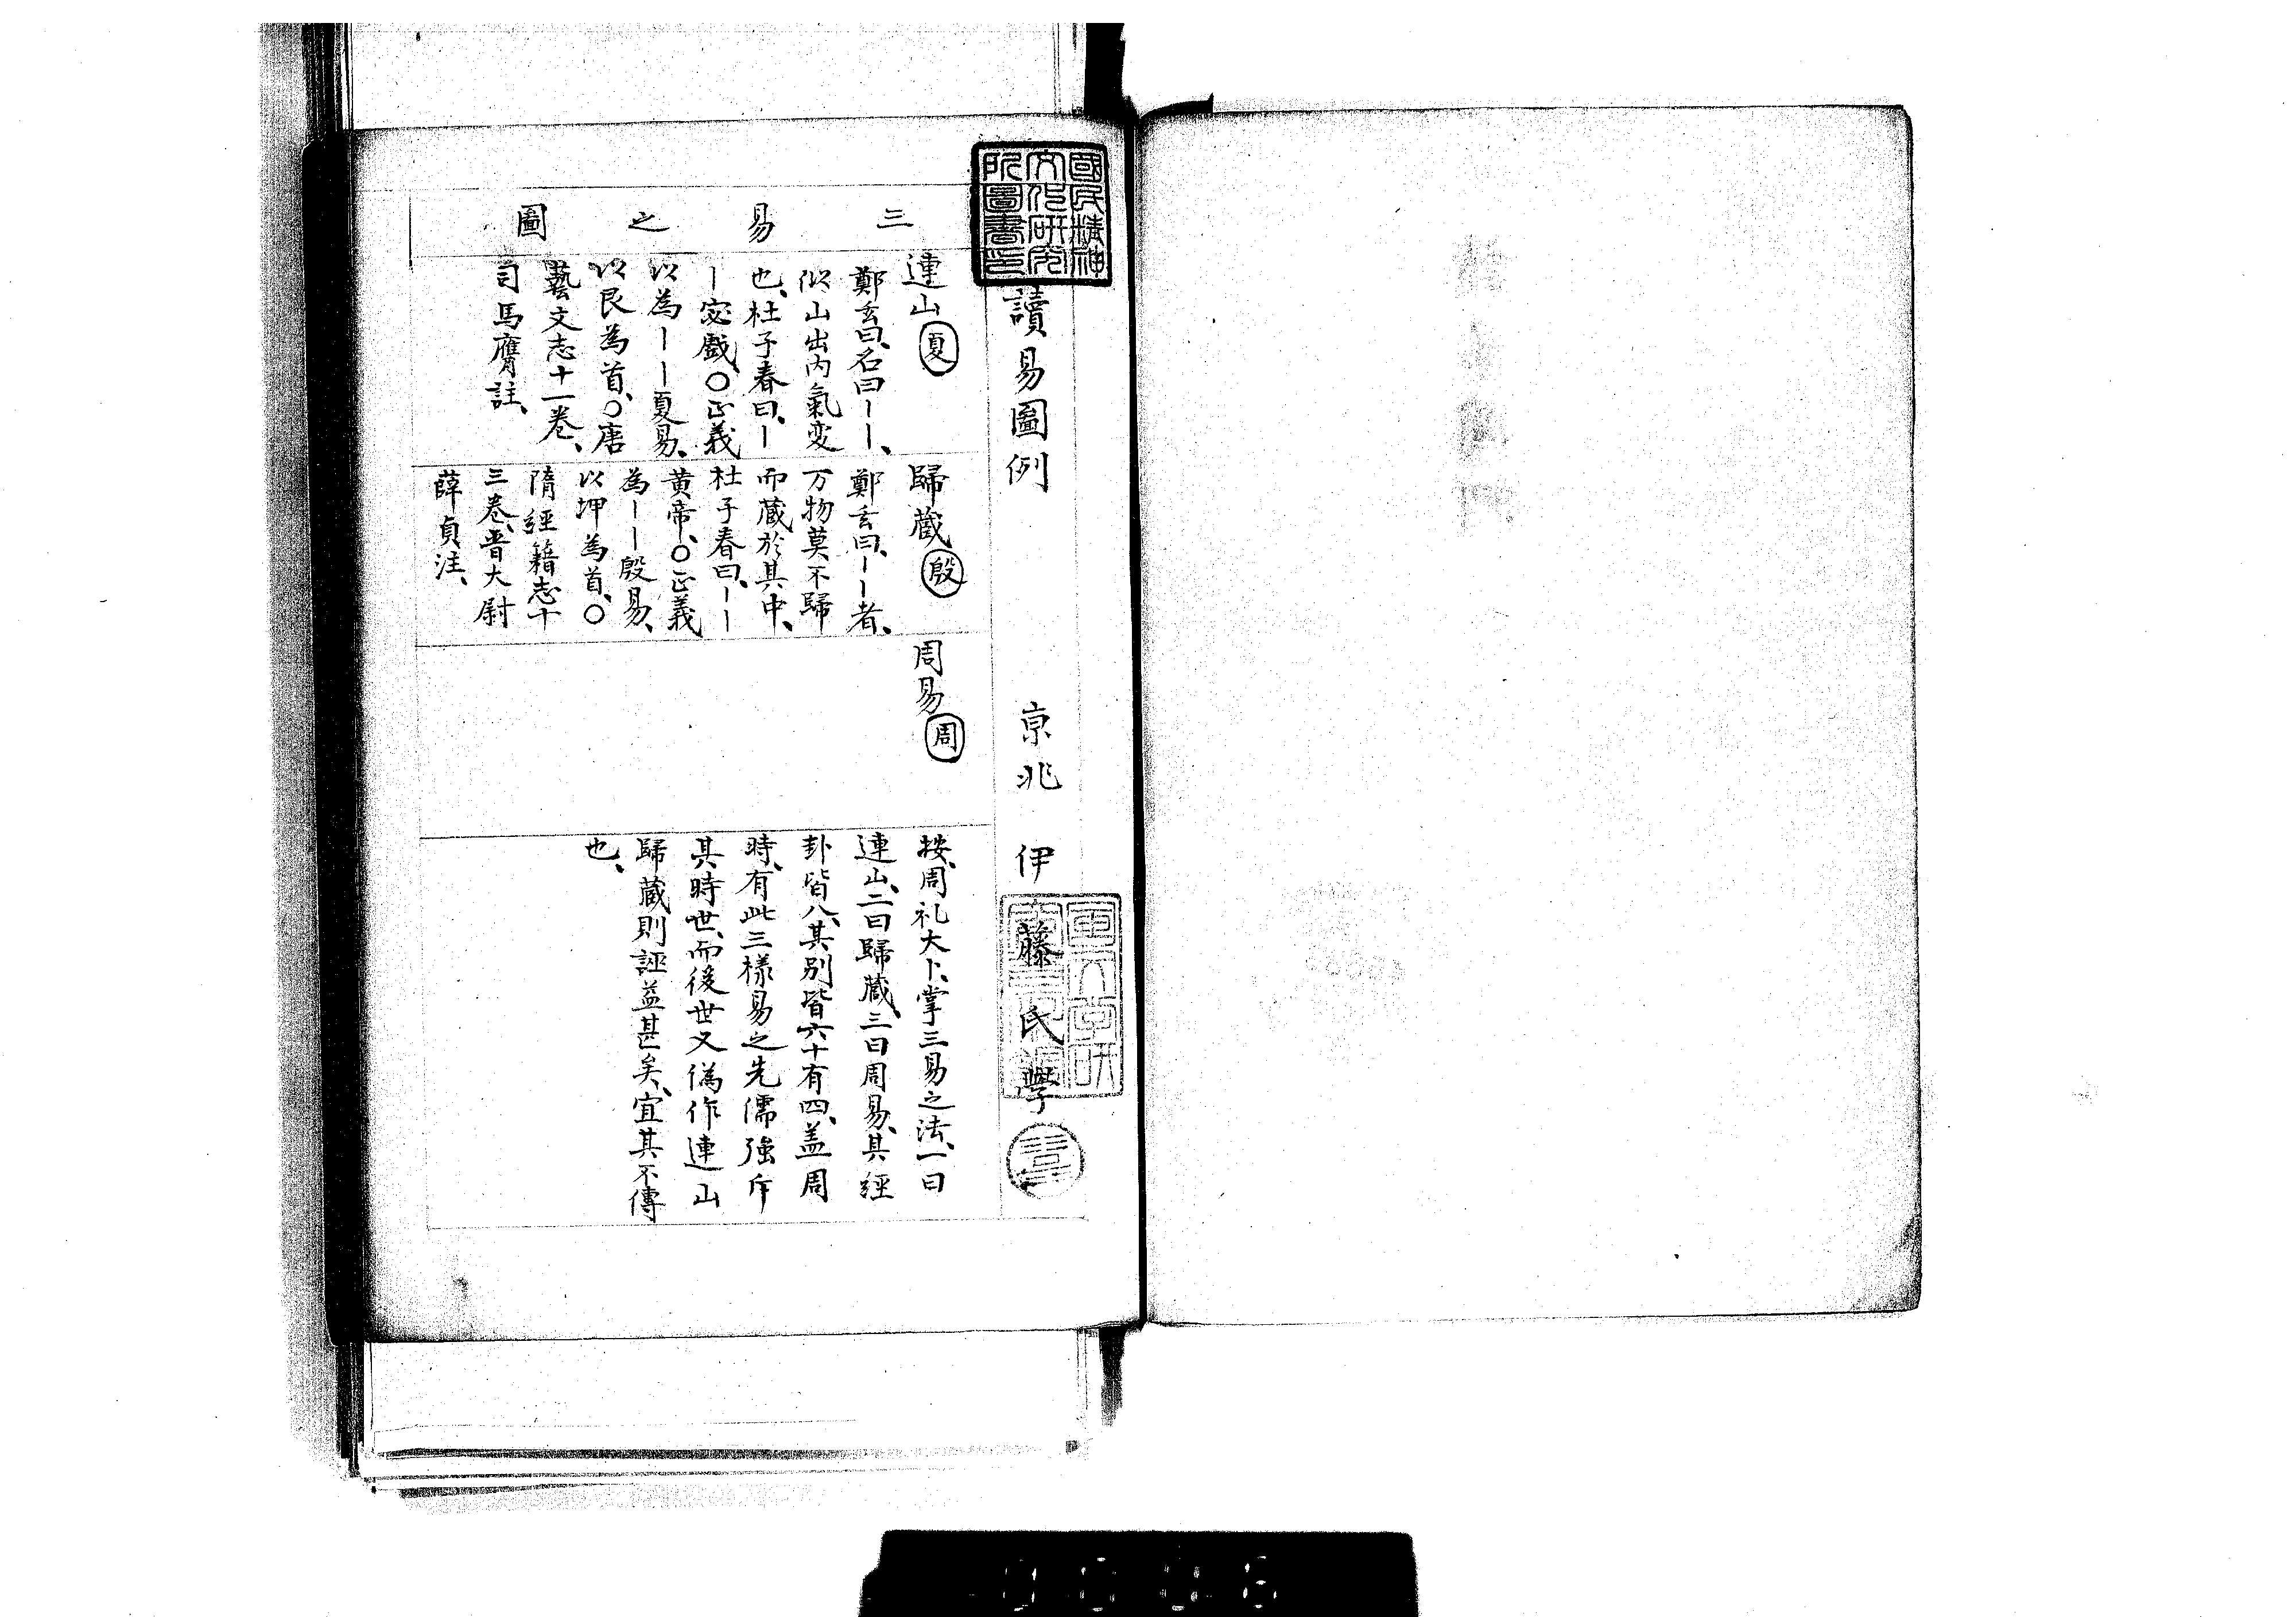 國民精神
文化研究
所圖書印
讀易圖例
京兆 伊藤氏學
三易之圖
連山 夏
鄭玄曰、名曰〡〡、
似山出内氣変
也、杜子春曰、〡
〡宓戲○正義
以為〡〡夏易、
以艮為首、○唐
藝文志十一卷、
司馬膺註、
歸藏 殷
鄭玄曰、〡〡者、
万物莫不歸
而藏於其中、
杜子春曰、〡〡
黄帝、○正義
為〡〡殷易、
以坤為首、○
隋經籍志十
三卷、晋大尉
薛貞注、
周易 周
按、周礼大卜、掌三易之法、一曰
連山、二曰歸藏、三曰周易、其經
卦皆八、其別皆六十有四、盖周
時、有此三様易之先儒強斥
其時世、而後世又偽作連山
歸藏則誣益甚矣、宜其不傳
也、